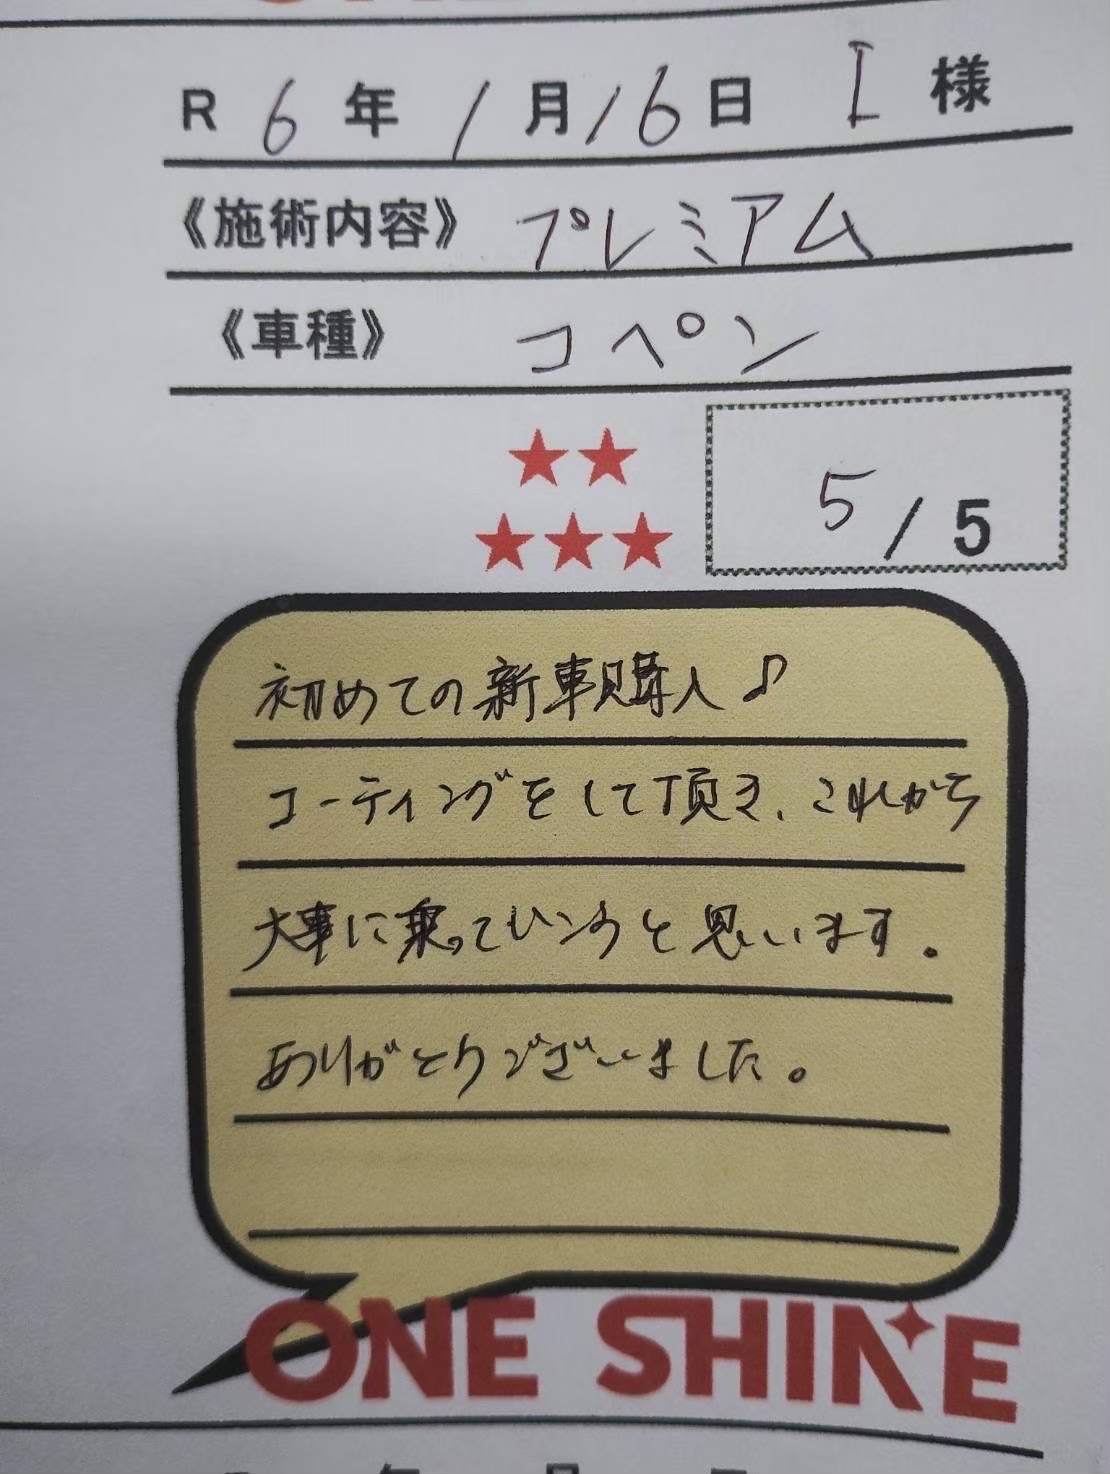 R 6 年 1 月 16 日 I 様
《施術内容》 プレミアム
《車種》 コペン
★★
★★★
5 / 5
初めての新車購入♪
コーティングをして頂き、これから
大事に乗っていこうと思います。
ありがとうございました。
ONE SHINE